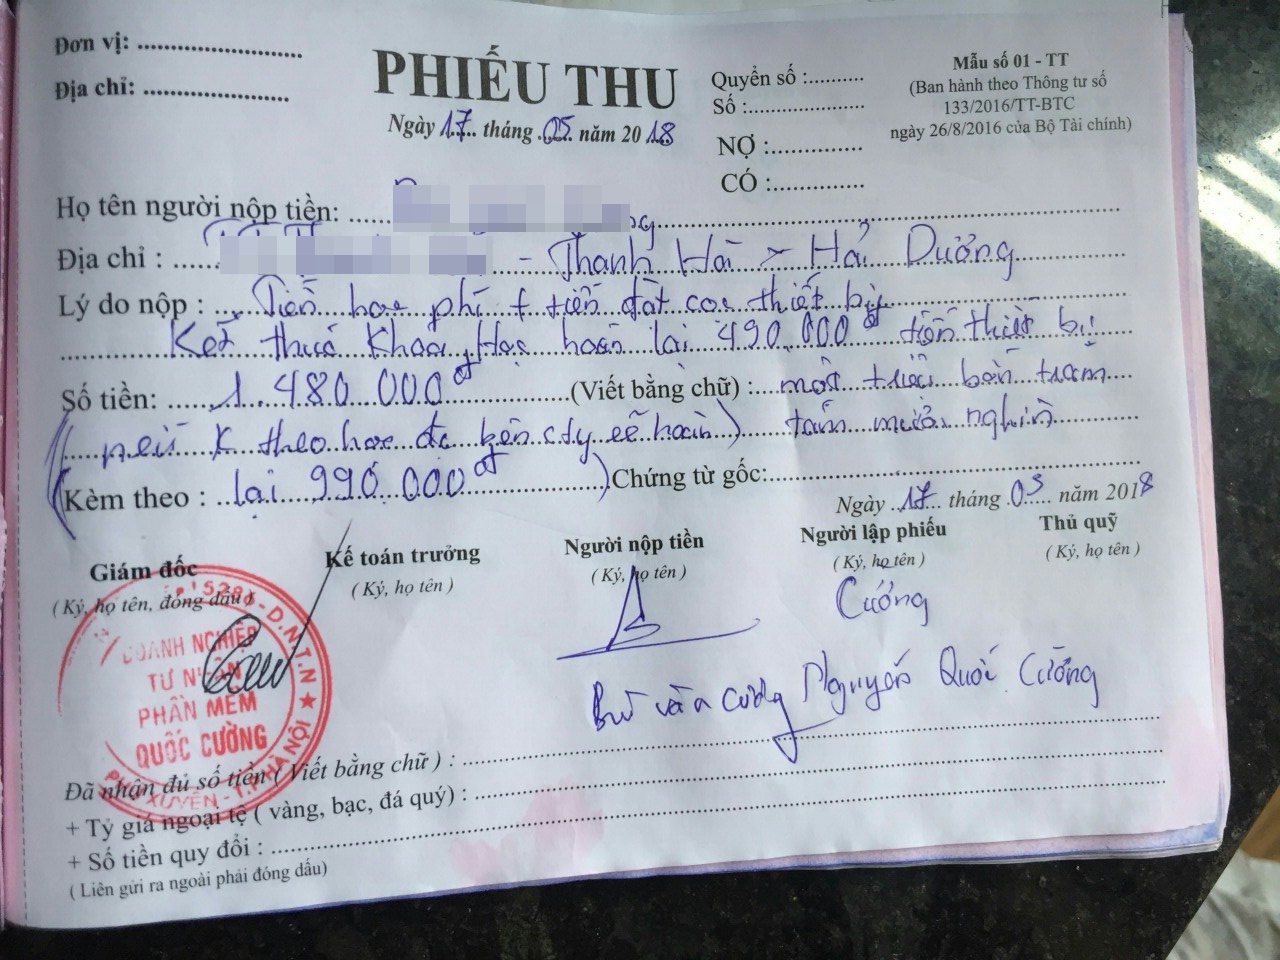 Đơn vị: ........................
Địa chỉ: .....................
PHIẾU THU
Ngày 17 tháng 05 năm 2018
Quyển số :..........
Số :......................
NỢ :................
CÓ :................
Mẫu số 01 - TT
(Ban hành theo Thông tư số
133/2016/TT-BTC
ngày 26/8/2016 của Bộ Tài chính)
Họ tên người nộp tiền:
Địa chỉ : - Thanh Hà - Hải Dương
Lý do nộp : Tiền học phí + tiền đặt cọc thiết bị,
Kết thúc khóa học hoàn lại 490.000đ tiền thiết bị
Số tiền: 1.480.000đ (Viết bằng chữ) : một triệu bốn trăm
(nếu k theo học đc bên cty sẽ hoàn) tám mươi nghìn
Kèm theo : lại 990.000đ) Chứng từ gốc:
Ngày 17 tháng 05 năm 2018
Giám đốc
(Ký, họ tên, đóng dấu)
Kế toán trưởng
(Ký, họ tên )
Người nộp tiền
(Ký, họ tên )
Người lập phiếu
(Ký, họ tên )
Thủ quỹ
(Ký, họ tên )
Cường
Nguyễn Quốc Cường
D.N.T.N
DOANH NGHIỆP
TƯ NHÂN
PHẦN MỀM
QUỐC CƯỜNG
XUYÊN - T.P HÀ NỘI
Đã nhận đủ số tiền ( Viết bằng chữ ) :
+ Tỷ giá ngoại tệ ( vàng, bạc, đá quý) :
+ Số tiền quy đổi :
( Liên gửi ra ngoài phải đóng dấu)